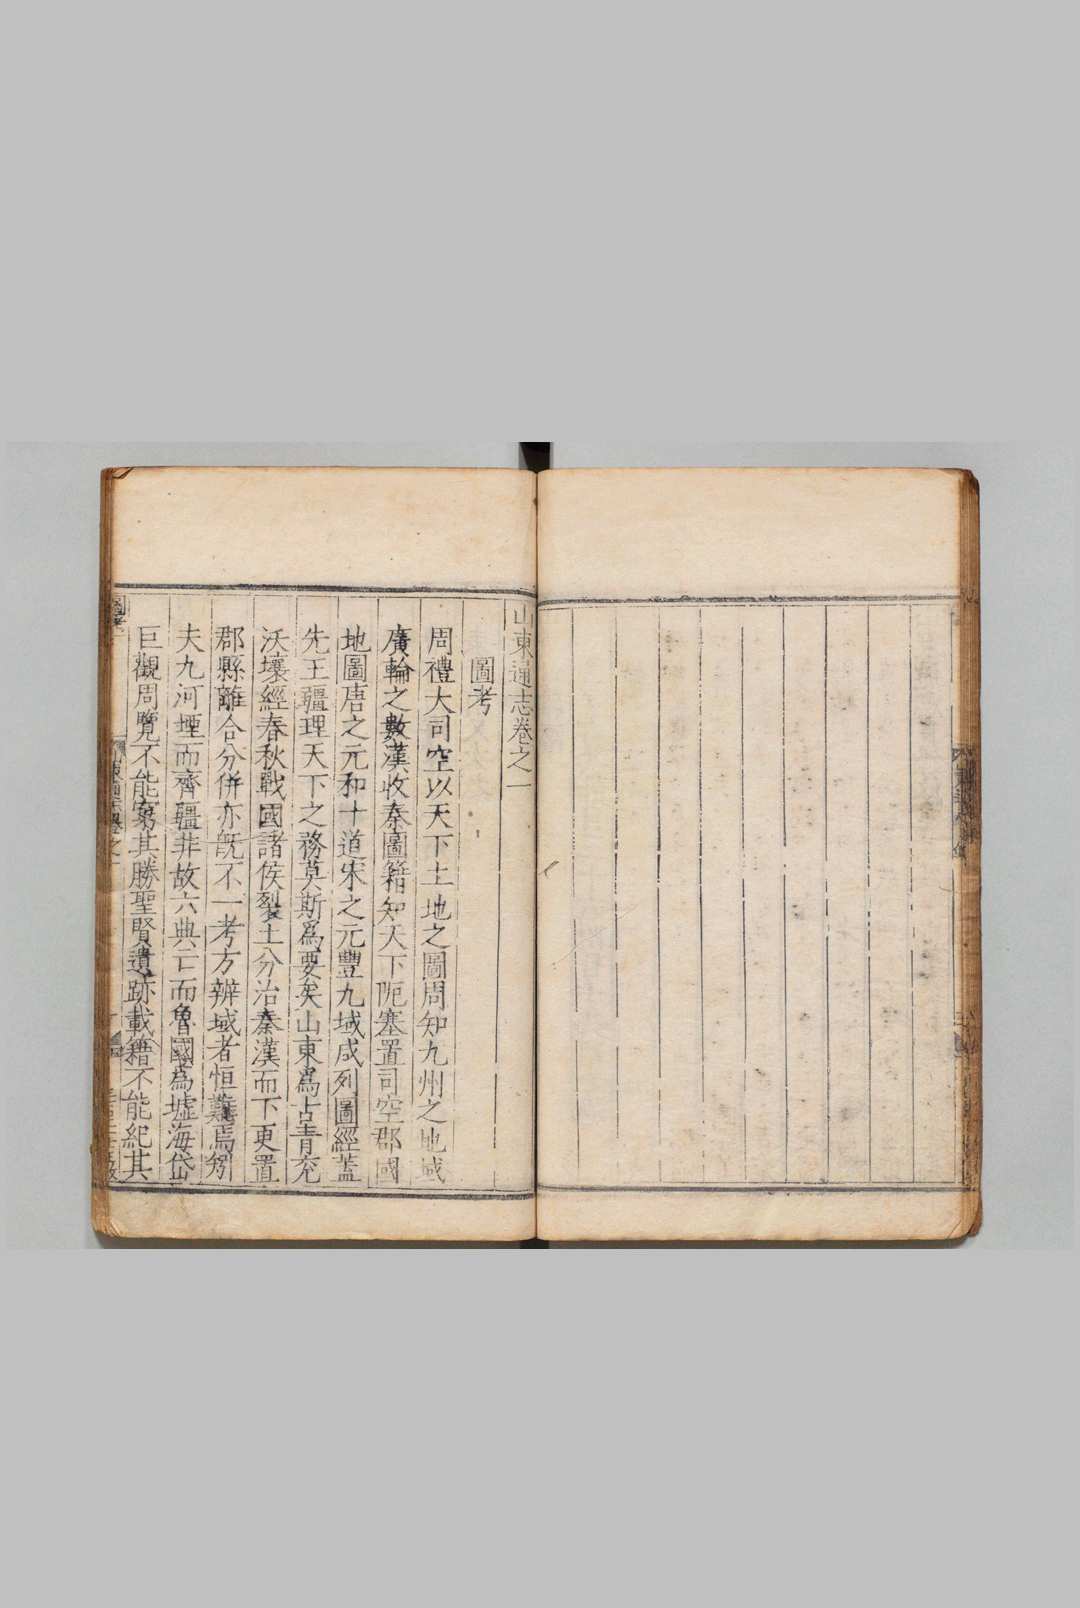 山東通志卷之一
圖考
周禮大司空以天下土地之圖周知九州之地域
廣輪之數漢收秦圖籍知天下阨塞置司空郡國
地圖唐之元和十道宋之元豐九域咸列圖經蓋
先王疆理天下之務莫斯爲要矣山東爲古青兖
沃壤經春秋戰國諸侯裂土分治秦漢而下更置
郡縣離合分併亦旣不一考方辨域者恒難焉矧
夫九河堙而齊疆非故六典亡而魯國爲墟海岱
巨觀周覽不能窮其勝聖賢遺跡載籍不能紀其
山東通志卷之一